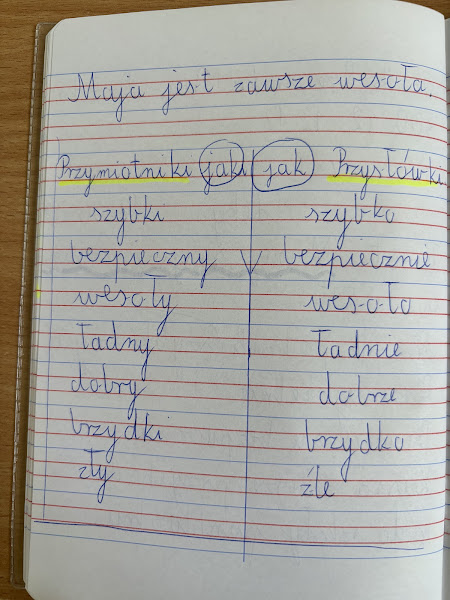 Maja jest zawsze wesoła.
Przymiotniki jaki jak Przysłówki
szybki szybko
bezpieczny bezpiecznie
wesoły wesoło
ładny ładnie
dobry dobrze
brzydki brzydko
zły źle